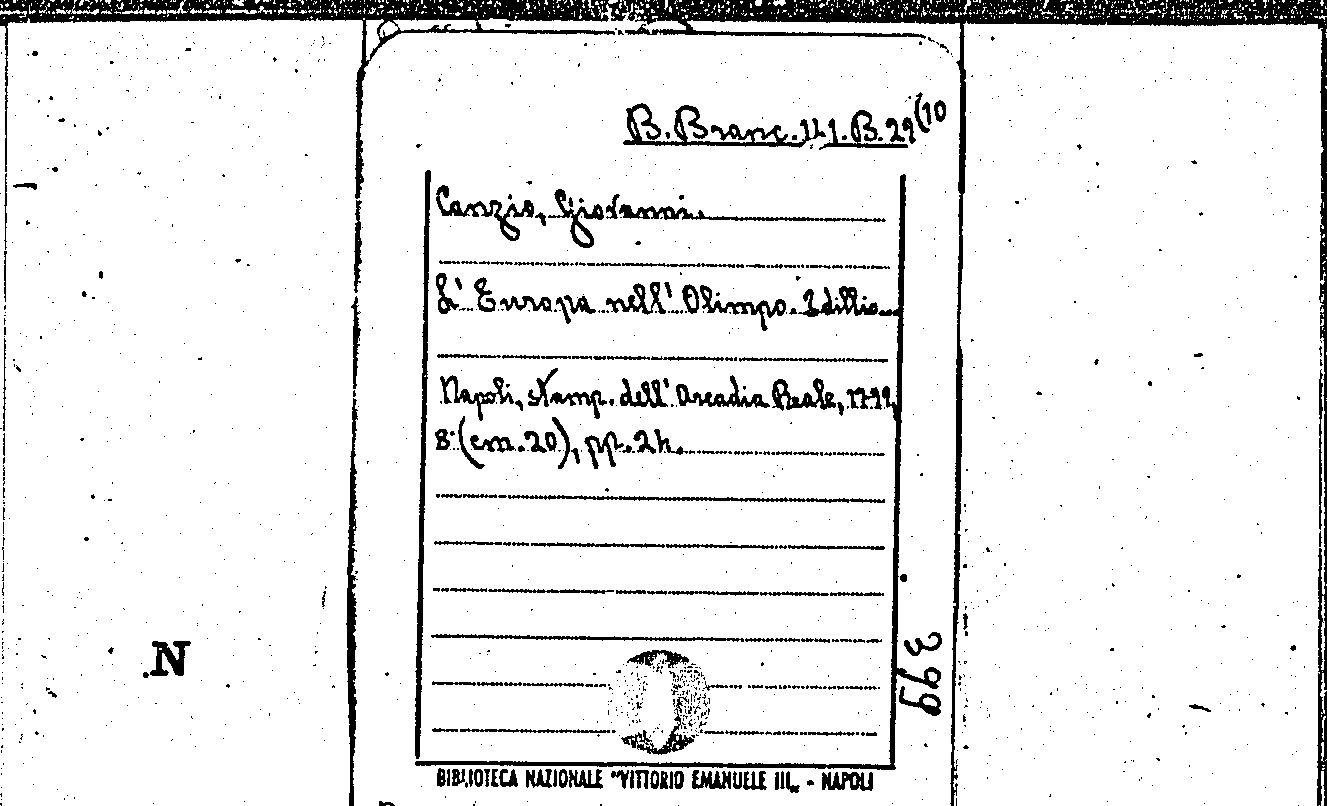 B. Branc. 141. B. 29 (10
Canzio, Giovanni.
L' Europa nell' Olimpo. Idillio.
Napoli, stamp. dell' Arcadia Reale,
8° (cm. 20), pp. 24.
N
399
BIBLIOTECA NAZIONALE "VITTORIO EMANUELE III„ - NAPOLI